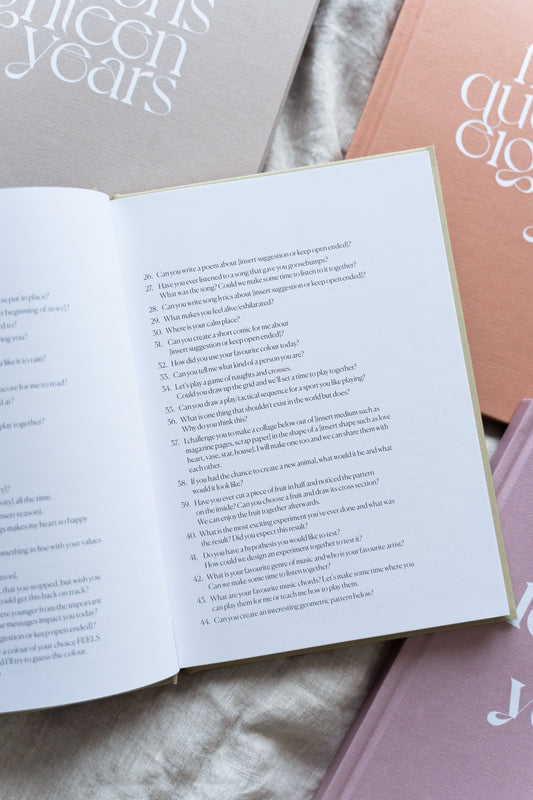 eighteen
years
you put in place?
beginning of story]?
d to?
ring you?
like it to rain?
score for me to read?
d at?
play together?
y]?
vity] all the time.
nsert reason].
gs makes my heart so happy
omething in line with your values
ason].
, that you stopped, but wish you
could get this back on track?
ere younger from the important
se messages impact you today?
ggestion or keep open ended]?
a colour of your choice FEELS
d I'll try to guess the colour.
26. Can you write a poem about [insert suggestion or keep open ended]?
27. Have you ever listened to a song that gave you goosebumps?
What was the song? Could we make some time to listen to it together?
28. Can you write song lyrics about [insert suggestion or keep open ended]?
29. What makes you feel alive/exhilarated?
30. Where is your calm place?
31. Can you create a short comic for me about
[insert suggestion or keep open ended]?
32. How did you use your favourite colour today?
33. Can you tell me what kind of a person you are?
34. Let's play a game of naughts and crosses.
Could you draw up the grid and we'll set a time to play together?
35. Can you draw a play/tactical sequence for a sport you like playing?
36. What is one thing that shouldn't exist in the world but does?
Why do you think this?
37. I challenge you to make a collage below out of [insert medium such as
magazine pages, scrap paper] in the shape of a [insert shape such as love
heart, vase, star, house]. I will make one too and we can share them with
each other.
38. If you had the chance to create a new animal, what would it be and what
would it look like?
39. Have you ever cut a piece of fruit in half and noticed the pattern
on the inside? Can you choose a fruit and draw its cross section?
We can enjoy the fruit together afterwards.
40. What is the most exciting experiment you've ever done and what was
the result? Did you expect this result?
41. Do you have a hypothesis you would like to test?
How could we design an experiment together to test it?
42. What is your favourite genre of music and who is your favourite artist?
Can we make some time to listen together?
43. What are your favourite music chords? Let's make some time where you
can play them for me or teach me how to play them.
44. Can you create an interesting geometric pattern below?